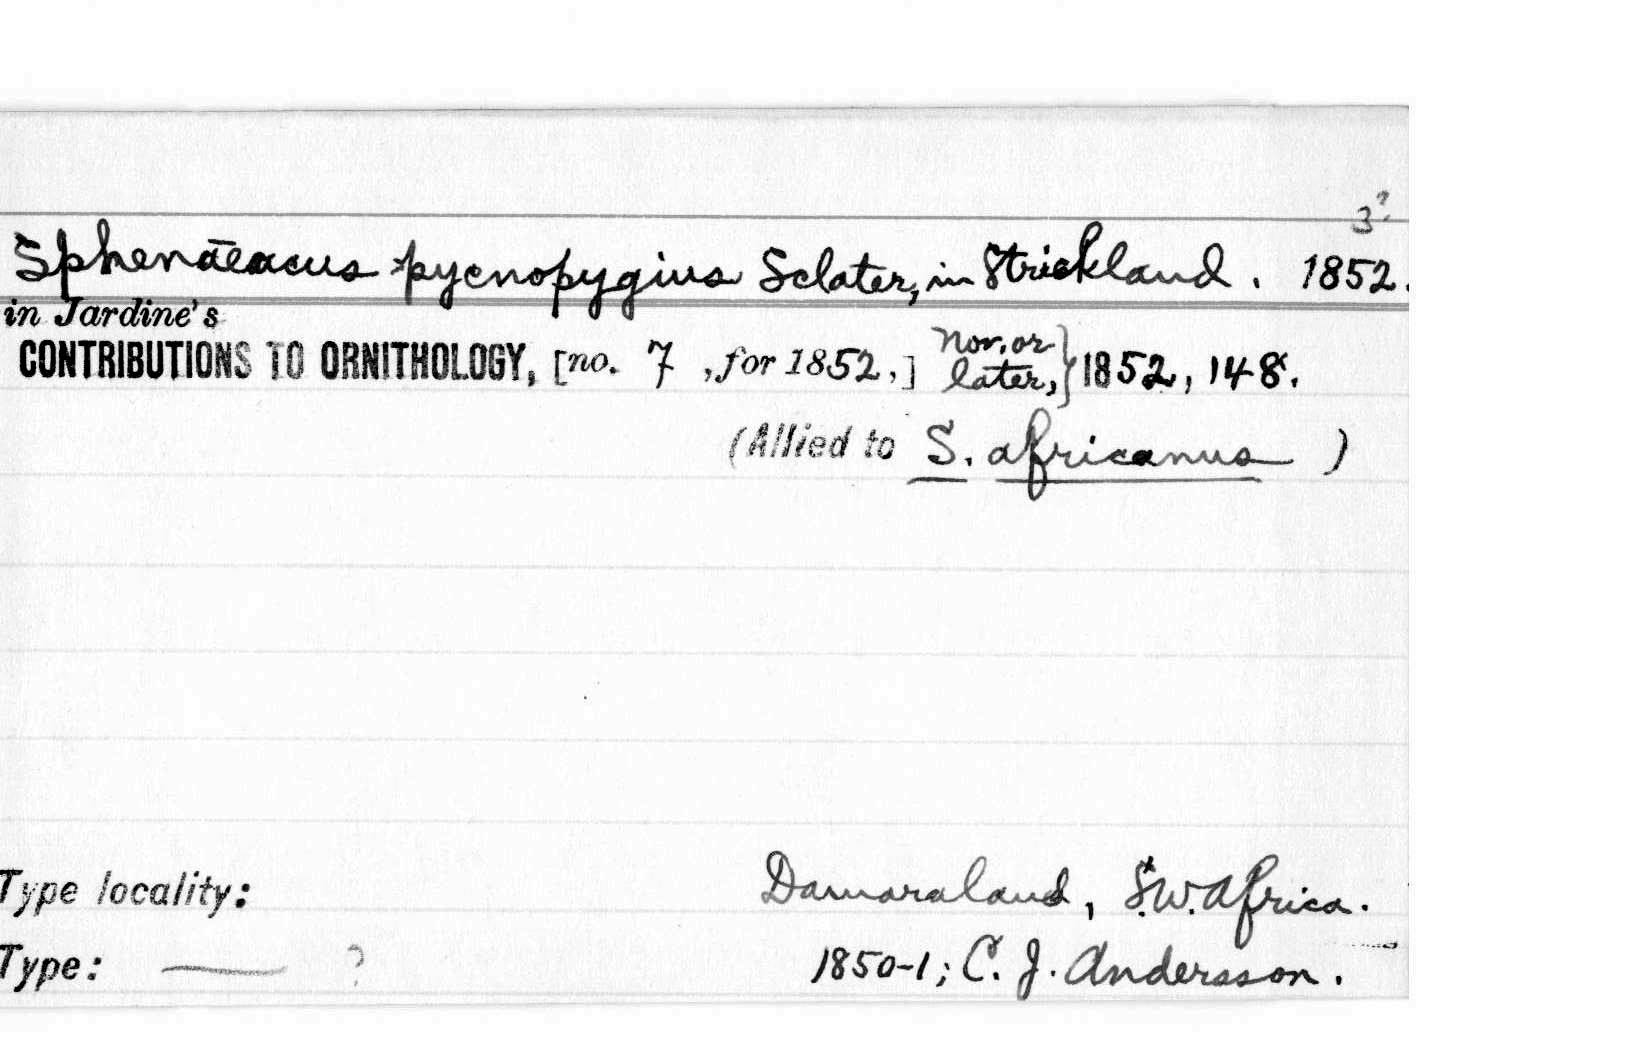 3?
Sphenæacus pycnopygius Sclater, in Strickland. 1852.
in Jardine's
CONTRIBUTIONS TO ORNITHOLOGY, [no. 7 , for 1852,] Nov. or later,} 1852, 148.
(Allied to S. africanus )
Type locality: Damaraland, S.W. Africa.
Type: —— ? 1850-1; C. J. Andersson.